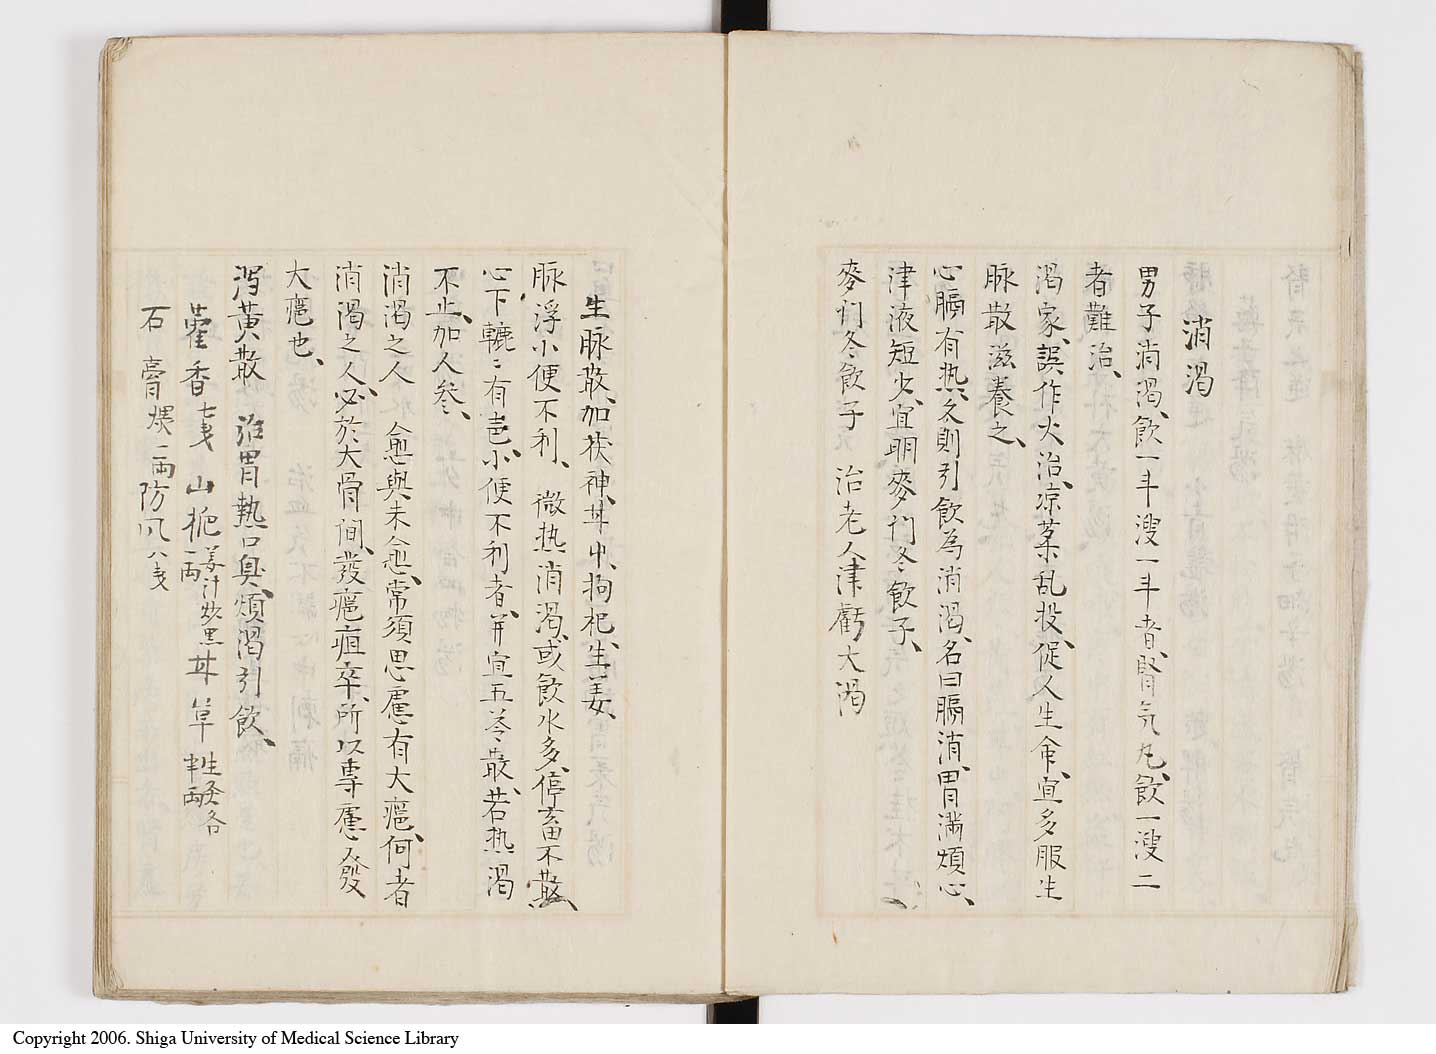 消渇
男子消渇、飲一斗溲一斗者、腎気丸、飲一溲二
者難治、
渇家、誤作火治、凉薬乱投、促人生命、宜多服生
脉散滋養之、
心膈有热、久則引飲為消渇、名曰膈消、胃満煩心、
津液短少、宜明麥门冬飲子、
麥门冬飲子 治老人津虧大渇
生脉散、加茯神、甘艸、拘杞、生姜、
脉浮小便不利、微热消渇、或飲水多、停畜不散、
心下轆〻有声、小便不利者、并宜五苓散、若热渇
不止、加人参、
消渇之人、愈與未愈、常須思慮有大癰、何者
消渇之人、必於大骨間、發癰疽卒、所以専慮發
大癰也、
瀉黄散 治胃熱口臭、煩渇引飲、
藿香七戔 山梔姜汁炒黒一両 甘草生炙各半両
石膏煨二両 防风八戔
Copyright 2006. Shiga University of Medical Science Library